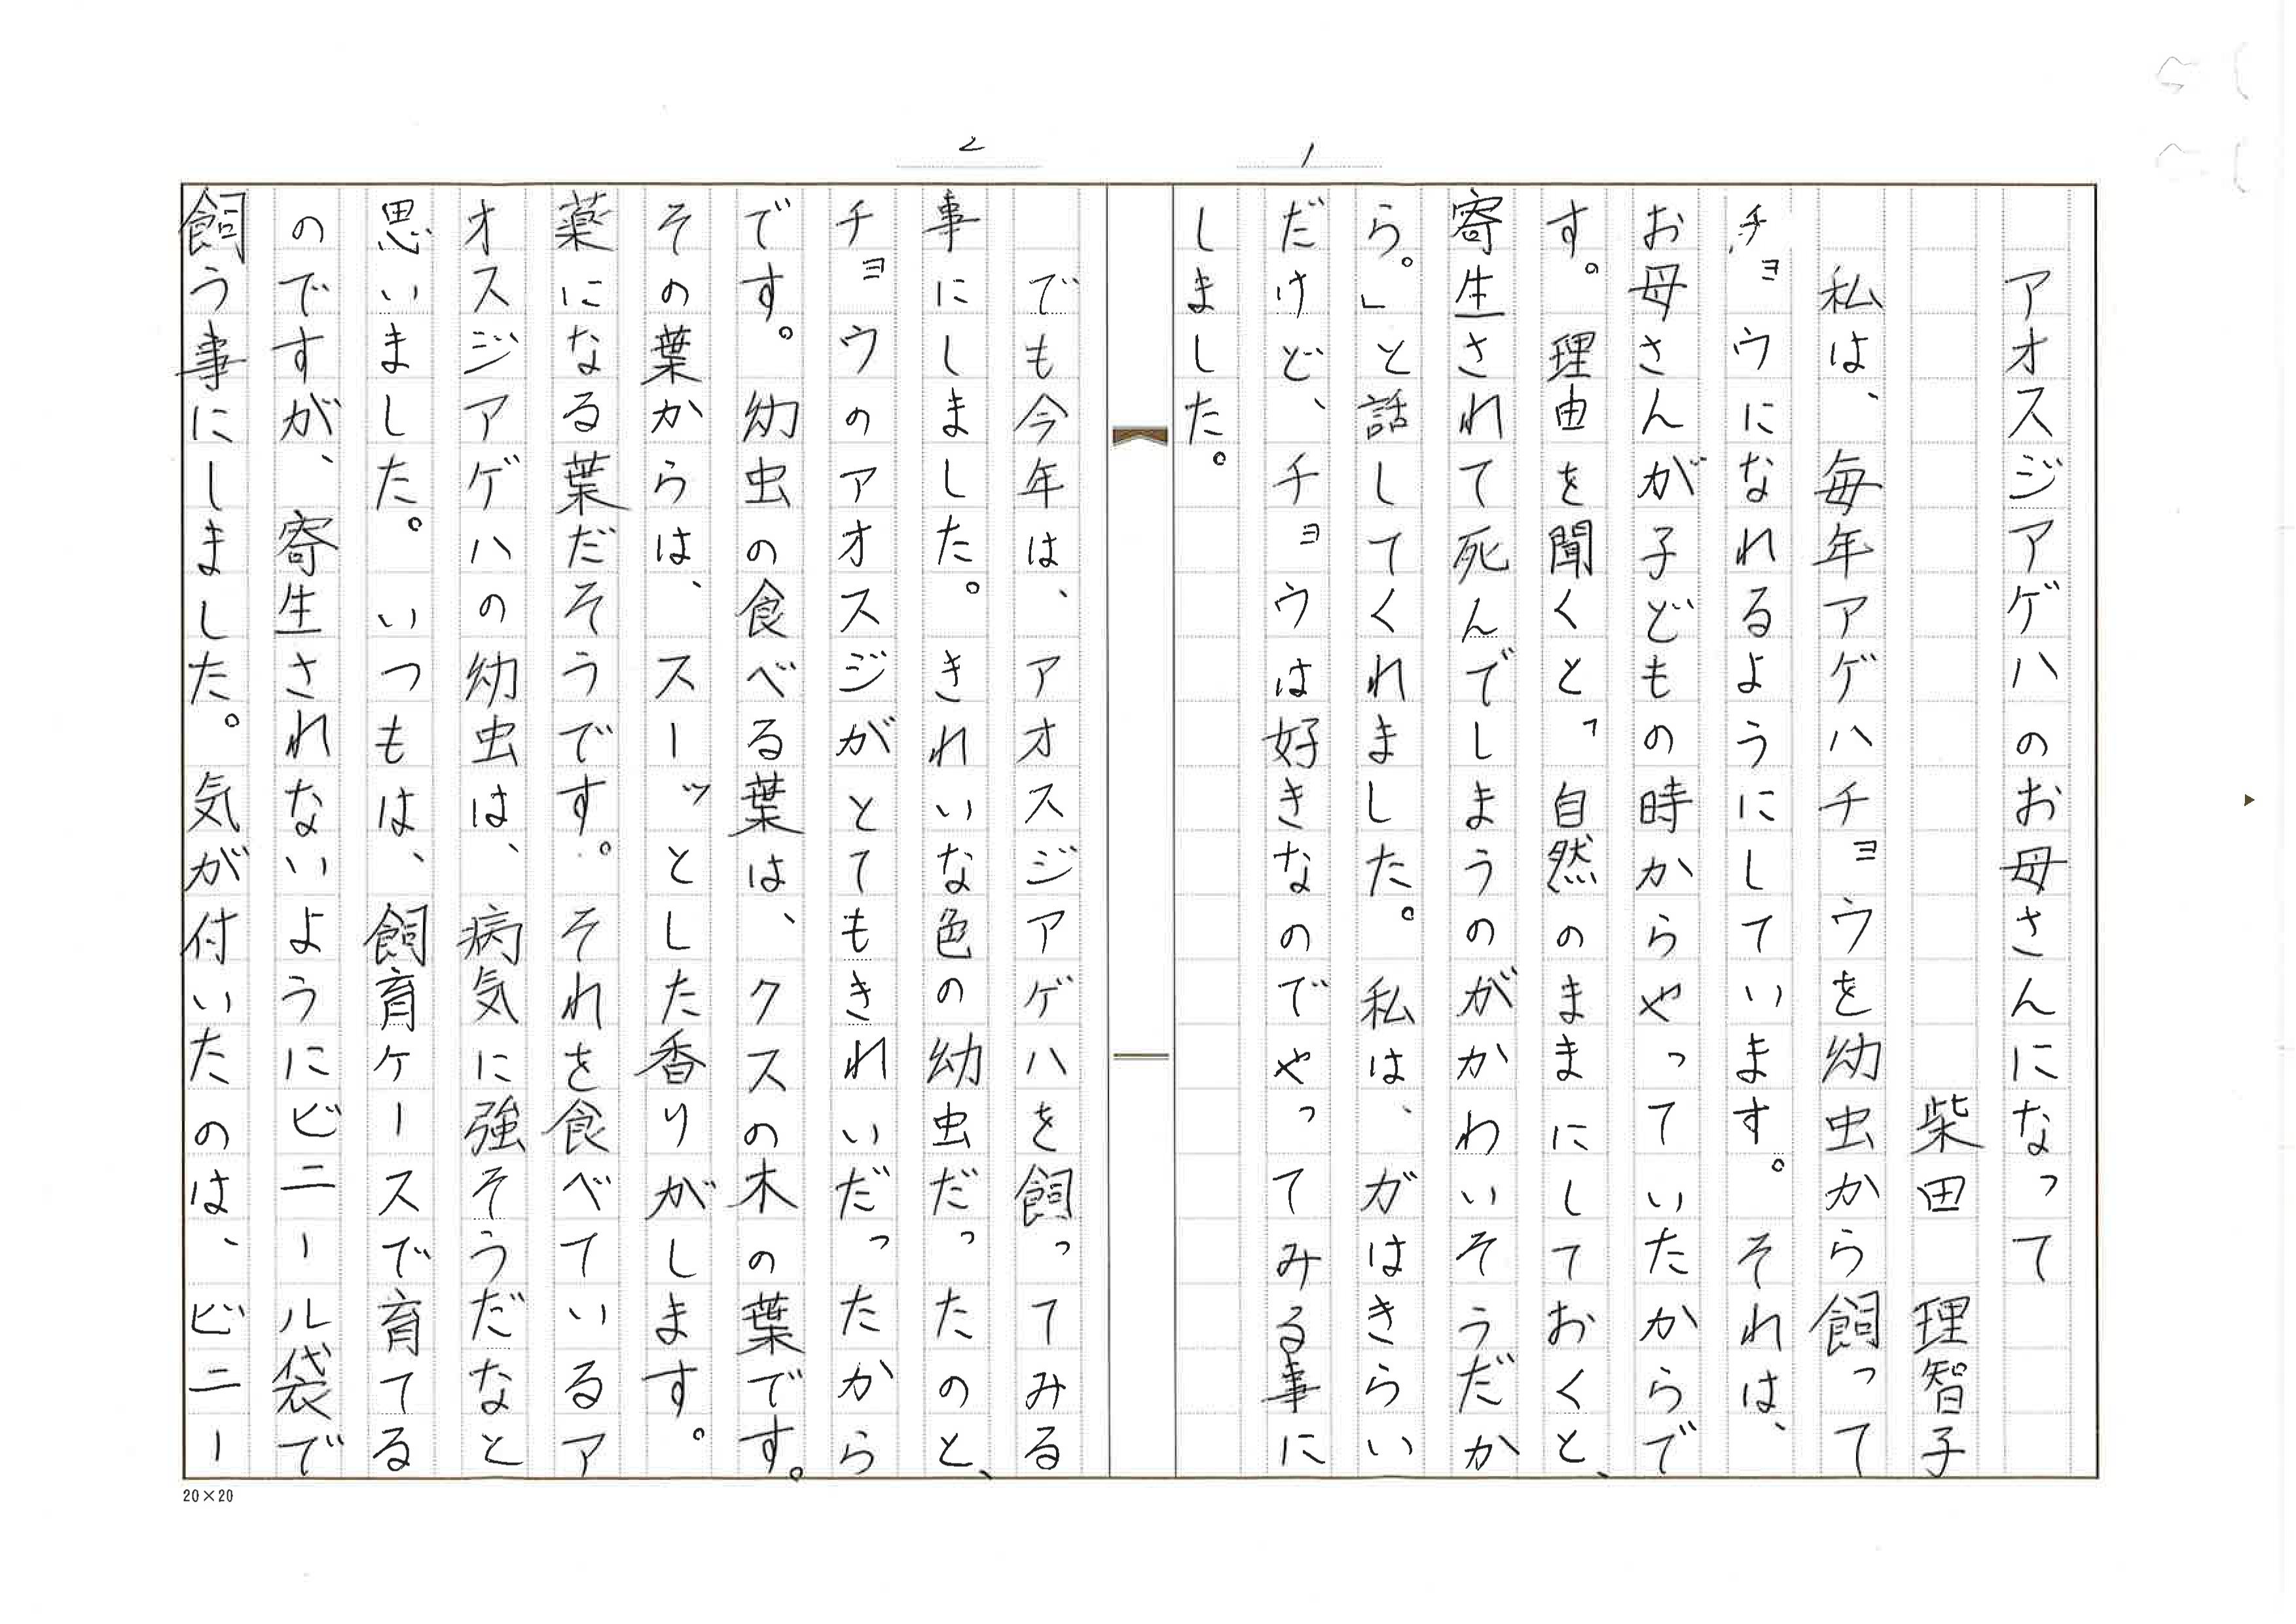 1
アオスジアゲハのお母さんになって
柴田　理智子
私は、毎年アゲハチョウを幼虫から飼って
チョウになれるようにしています。それは、
お母さんが子どもの時からやっていたからで
す。理由を聞くと、「自然のままにしておくと、
寄生されて死んでしまうのがかわいそうだか
ら。」と話してくれました。私は、ガはきらい
だけど、チョウは好きなのでやってみる事に
しました。
2
でも今年は、アオスジアゲハを飼ってみる
事にしました。きれいな色の幼虫だったのと、
チョウのアオスジがとてもきれいだったから
です。幼虫の食べる葉は、クスの木の葉です。
その葉からは、スーッとした香りがします。
薬になる葉だそうです。それを食べているア
オスジアゲハの幼虫は、病気に強そうだなと
思いました。いつもは、飼育ケースで育てる
のですが、寄生されないようにビニール袋で
飼う事にしました。気が付いたのは、ビニー
20×20